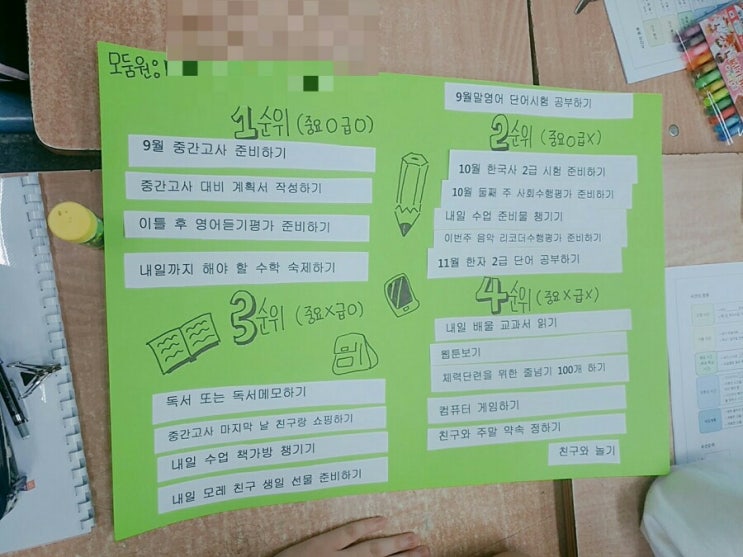 모둠원
1순위 (중요O급O)
9월 중간고사 준비하기
중간고사 대비 계획서 작성하기
이틀 후 영어듣기평가 준비하기
내일까지 해야 할 수학 숙제하기
9월말영어 단어시험 공부하기
2순위 (중요O급X)
10월 한국사 2급 시험 준비하기
10월 둘째 주 사회수행평가 준비하기
내일 수업 준비물 챙기기
이번주 음악 리코더수행평가 준비하기
11월 한자 2급 단어 공부하기
3순위 (중요X급O)
독서 또는 독서메모하기
중간고사 마지막 날 친구랑 쇼핑하기
내일 수업 책가방 챙기기
내일 모레 친구 생일 선물 준비하기
4순위 (중요X급X)
내일 배울 교과서 읽기
웹툰보기
체력단련을 위한 줄넘기 100개 하기
컴퓨터 게임하기
친구와 주말 약속 정하기
친구와 놀기